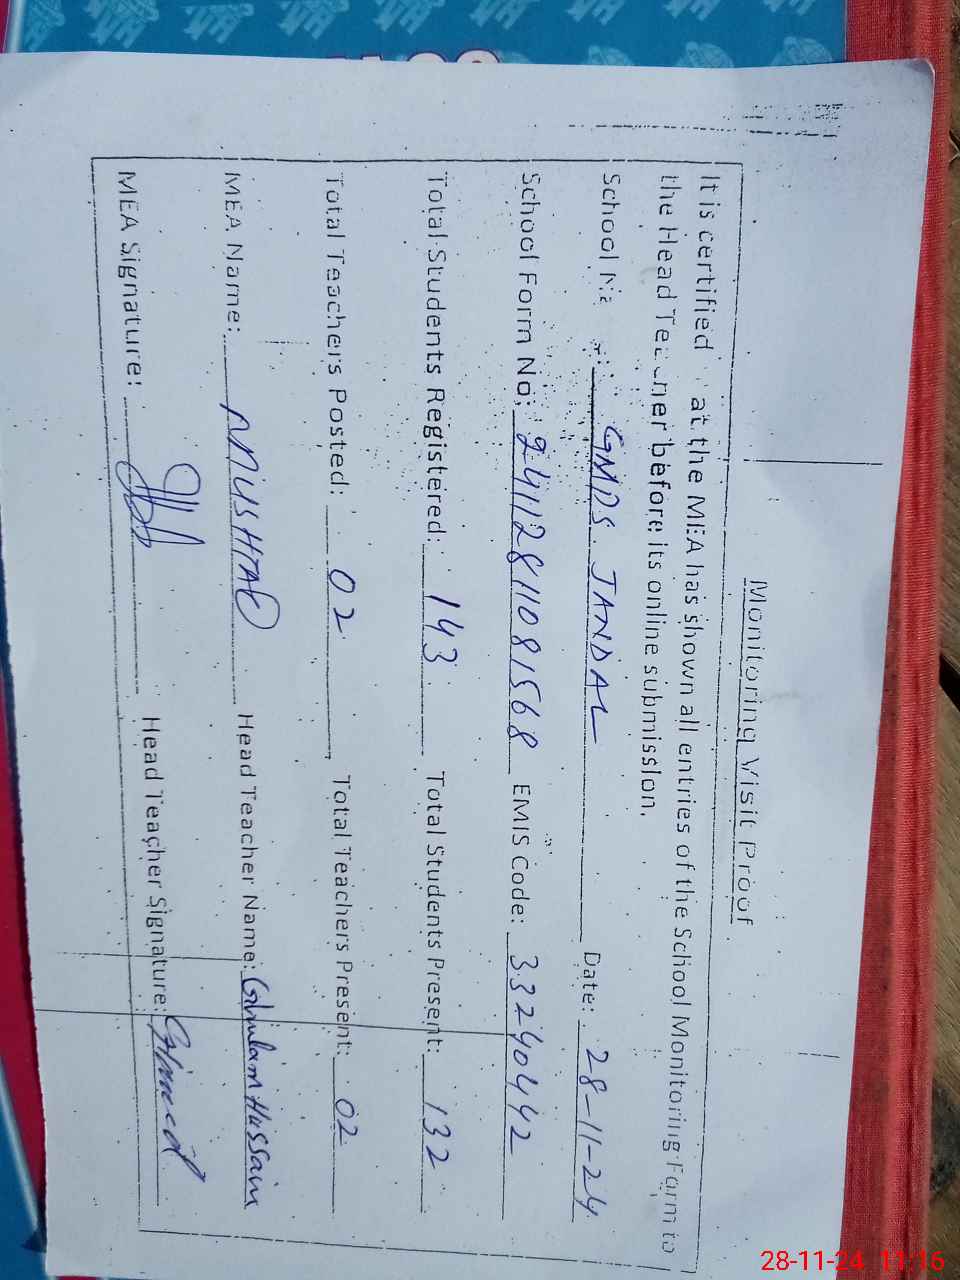 Monitoring Visit Proof
It is certified at the MEA has shown all entries of the School Monitoring Form to
the Head Teacher before its online submission.
School Na : GMPS JANDAL Date: 28-11-24
School Form No: 24112811081568 EMIS Code: 33240442
Total Students Registered: 143 Total Students Present: 132
Total Teachers Posted: 02 Total Teachers Present: 02
MEA Name: MUSHTAQ Head Teacher Name: Ghulam Hussain
MEA Signature: Head Teacher Signature:
28-11-24 11:16